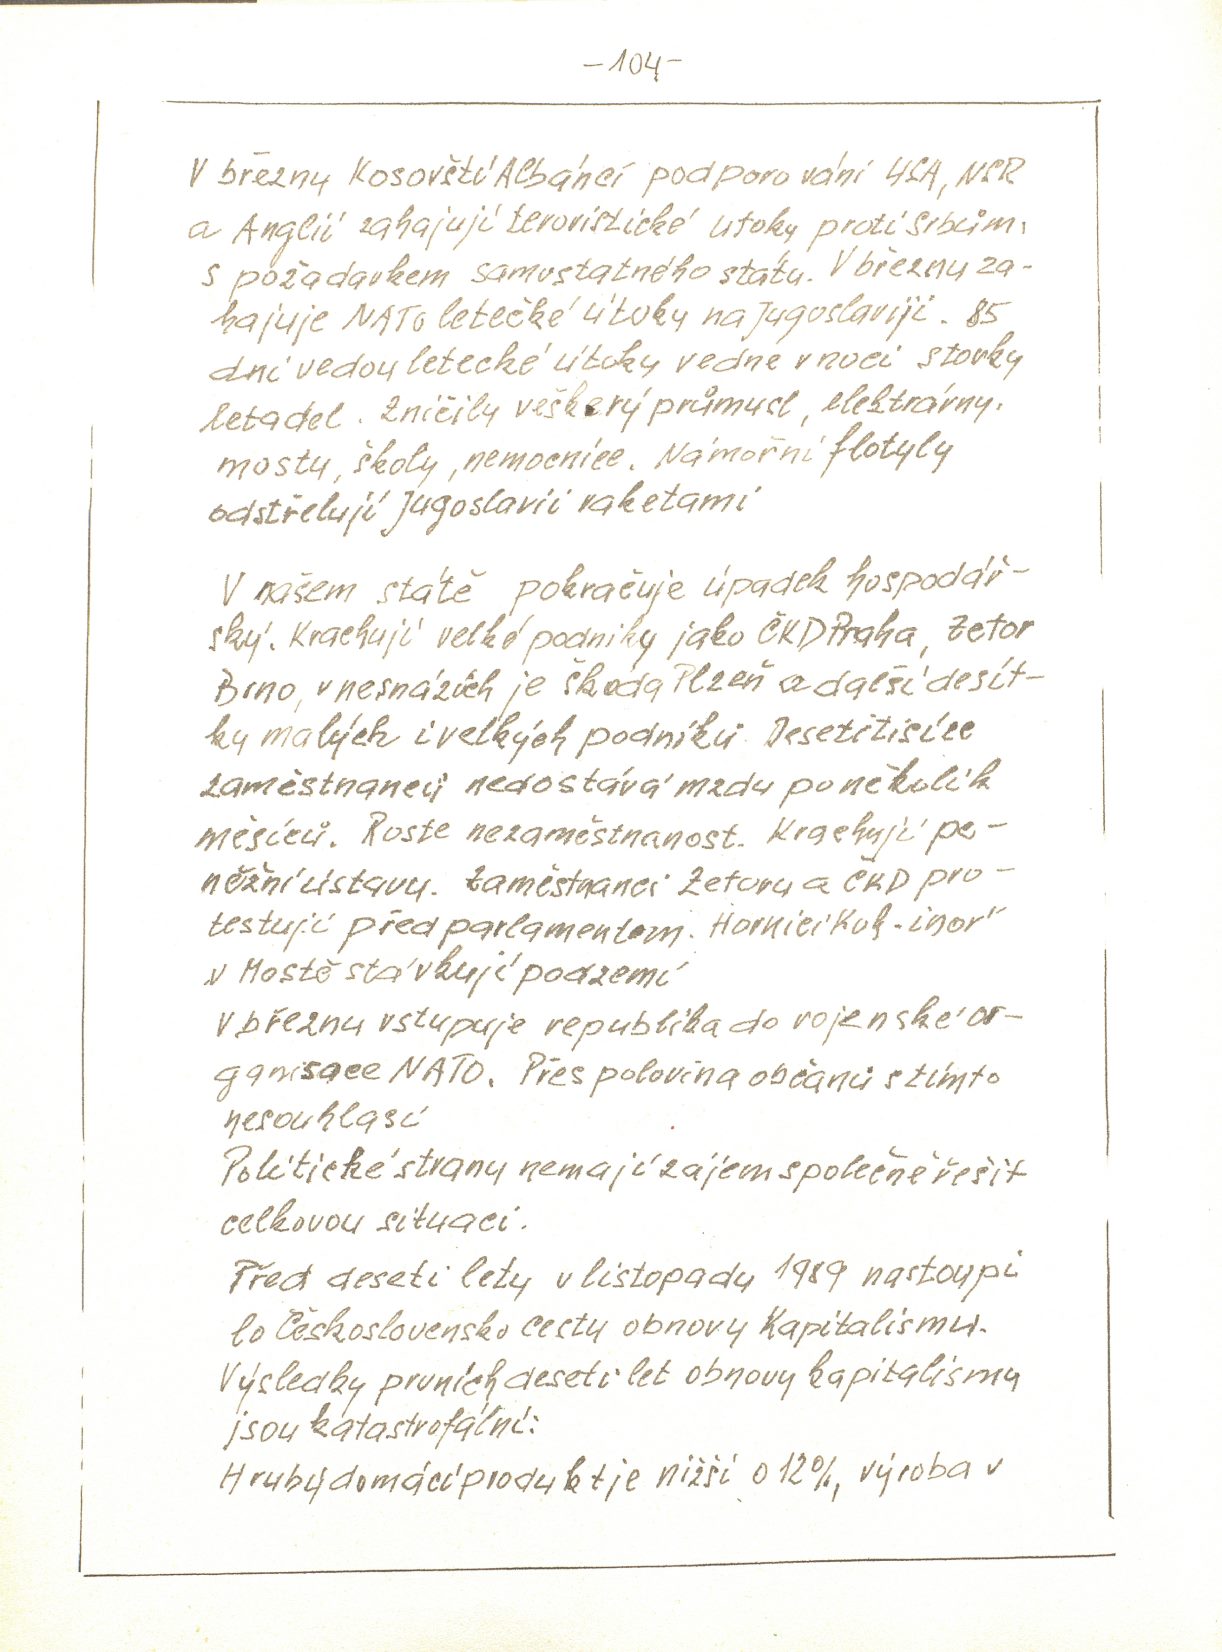 -104-
V březnu Kosovští Albánci podporováni USA, NSR
a Anglií zahajují teroristické útoky proti Srbům,
s požadavkem samostatného státu. V březnu za-
hajuje NATO letečké útoky na Jugoslaviji. 85
dní vedou letecké útoky vedne v noci stovky
letadel. Zničily veškerý průmysl, elektrárny,
mosty, školy, nemocnice. Námořní flotyly
odstřelují Jugoslavii raketami
V našem státě pokračuje úpadek hospodář-
ský. Krachují velké podniky jako ČKD Praha, Zetor
Brno, v nesnázích je Škoda Plzeň a další desít-
ky malých i velkých podniků. Desetitisíce
zaměstnanců nedostává mzdu po několik
měsíců. Roste nezaměstnanost. Krachují pe-
něžní ústavy. Zaměstnanci Zetoru a ČKD pro-
testují před parlamentem. Horníci Koh-inor"
v Mostě stávkují podzemí
V březnu vstupuje republika do vojenské or-
ganisace NATO. Přes polovina občanů s tímto
nesouhlasí
Politické strany nemají zájem společně řešit
celkovou situaci.
Před deseti lety v listopadu 1989 nastoupi
lo Československo cestu obnovy Kapitalismu.
Výsledky prvních deseti let obnovy kapitalismu
jsou katastrofální:
Hrubý domácí produkt je nižší o 12%, výroba v